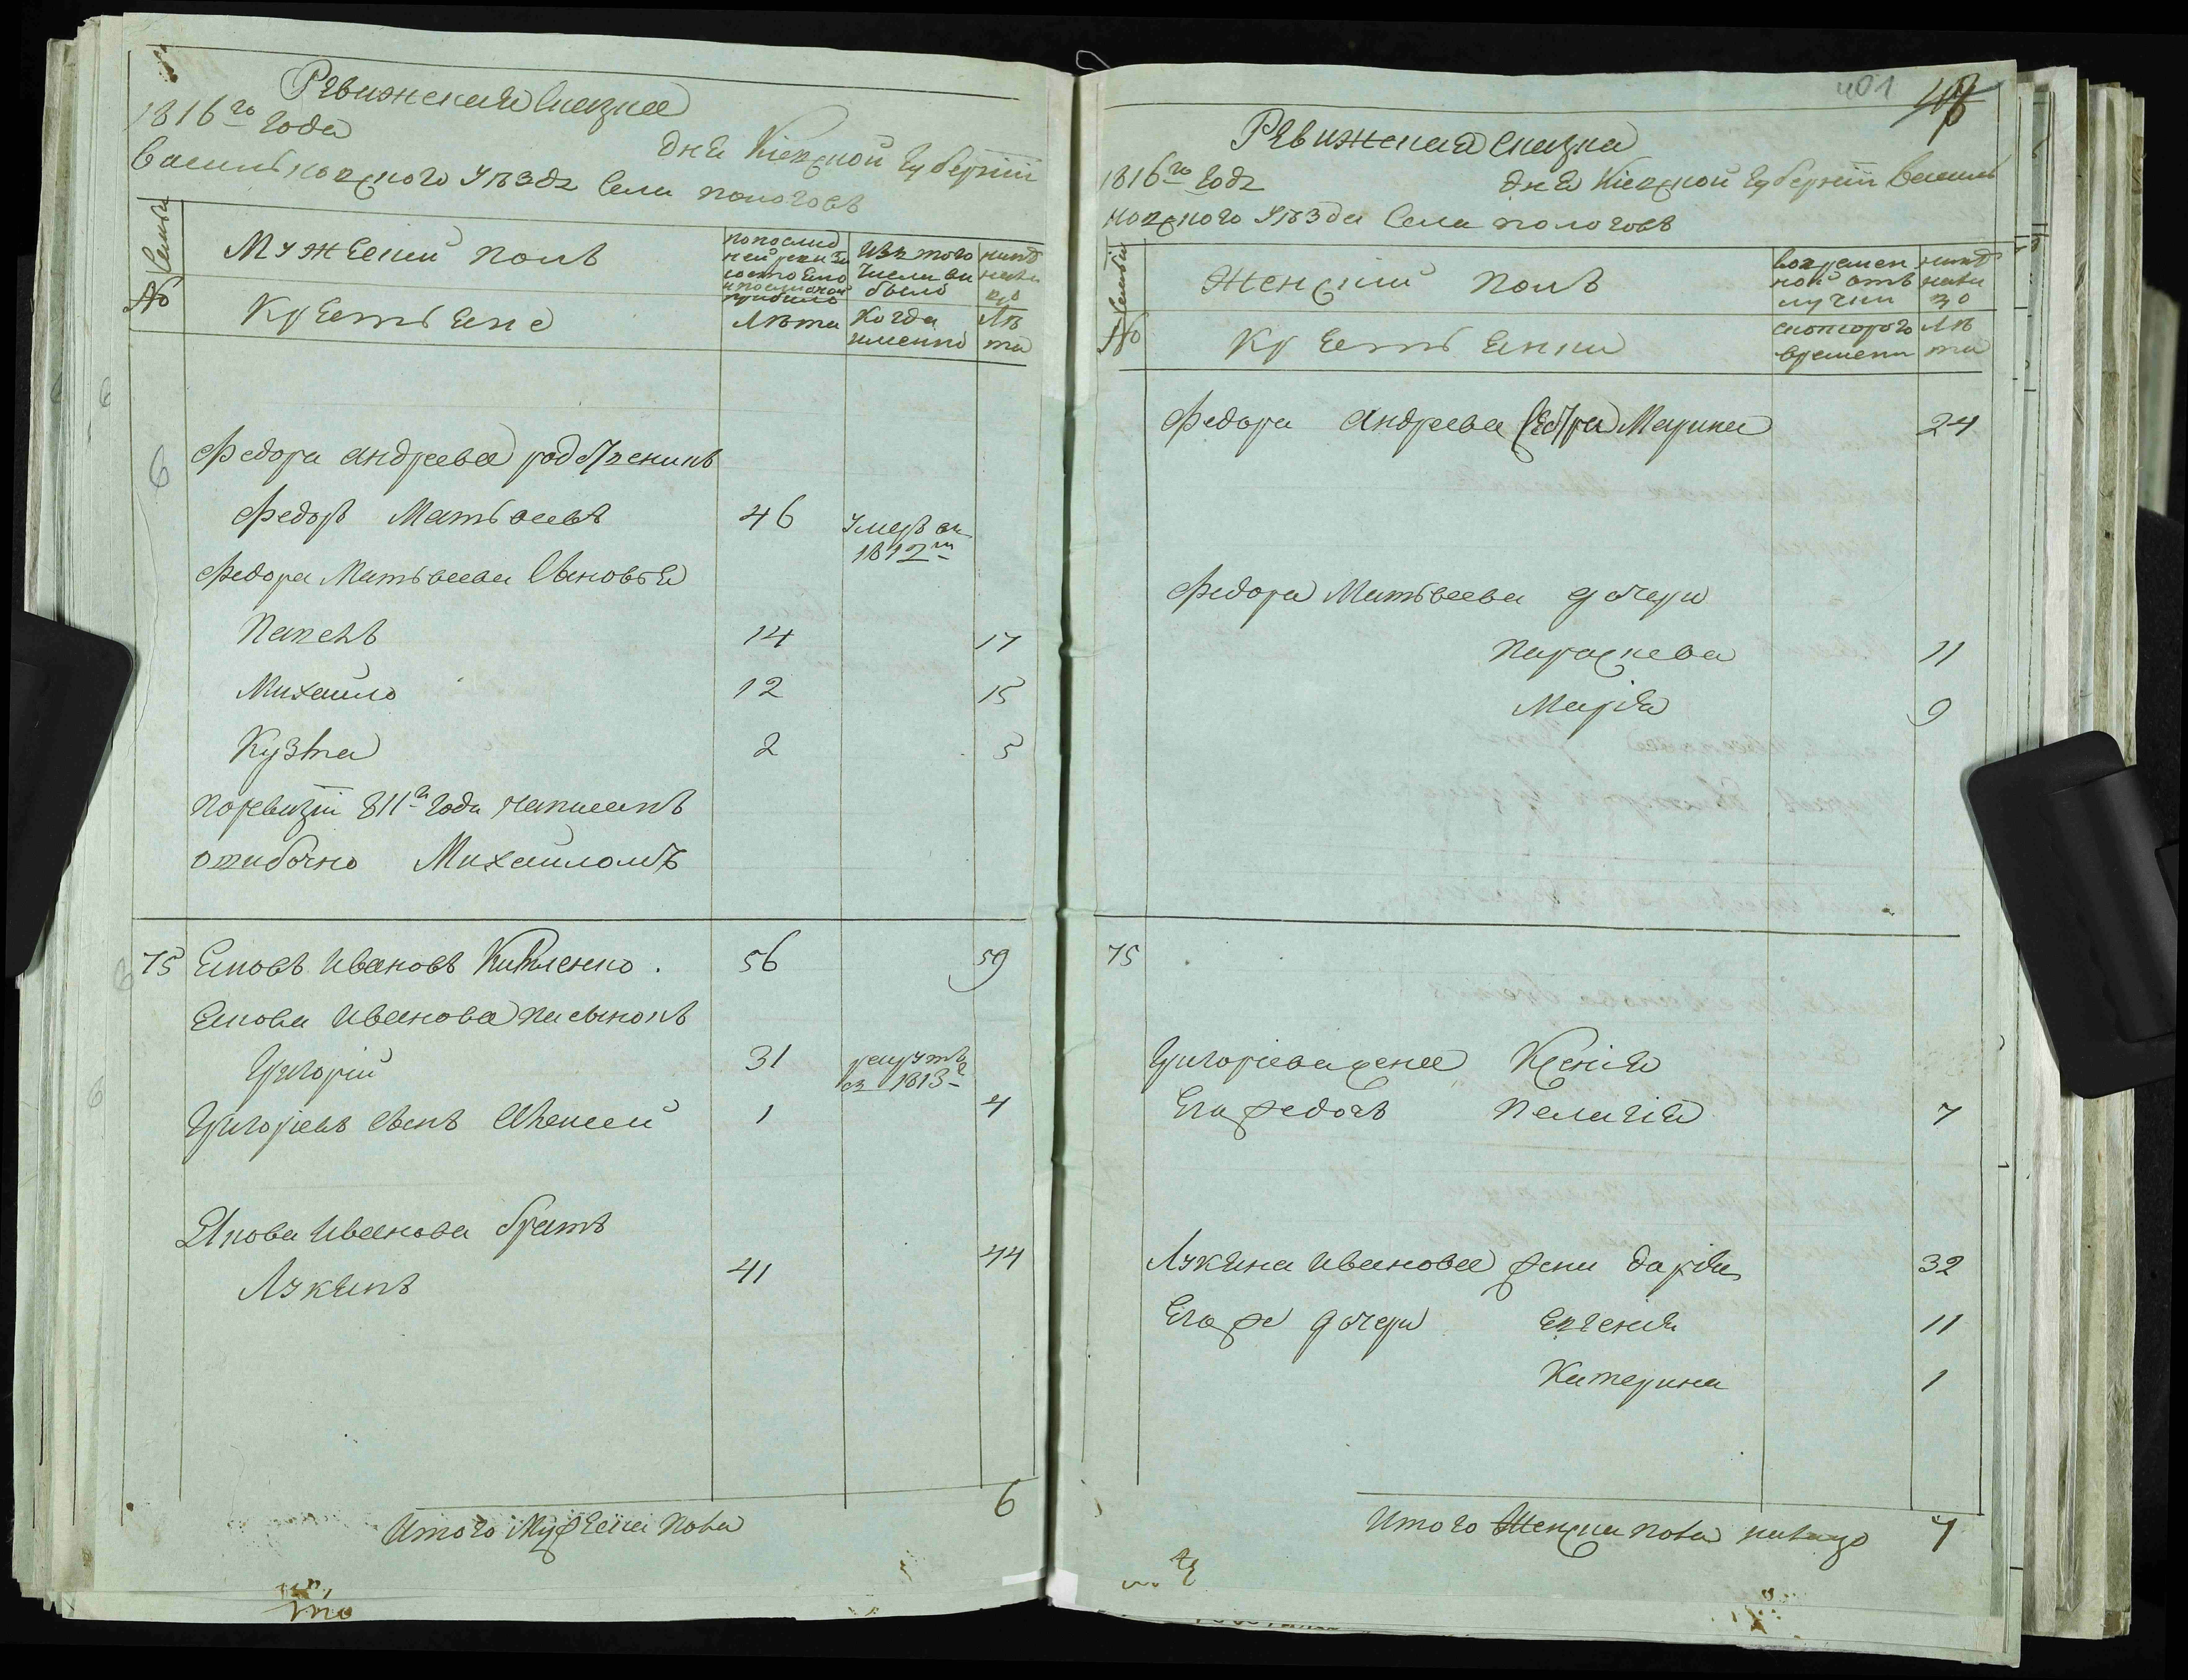 Ревижская Сказка
1816го года
дня Кіевской Губерніи
Васильковского Уѣзда Села Пологовъ
Семьи
№
Мужеский полъ
Крестьяне
по последней ревизии состояло и после оной прибыло
Лѣта
Изъ того числа выбыло
Когда именно
ныне налицо
Лѣта
Федора Андреева родственикъ
Федоръ Матвеевъ 46 Умеръ въ 1812м
Федора Матвеева Сыновья
Павелъ 14 17
Михайло 12 15
Кузма 2 5
По ревизіи 811й года написанъ
ошибочно Михайломъ
75 Яковъ Ивановъ 56 59
Якова Иванова пасынокъ
Григорій 31 рекрутъ въ 1813
Григорьевъ сынъ Алексей 1 4
Якова Иванова братъ
Лукьянъ 41 44
Итого Мужеска пола 6
401
Ревижская Сказка
1816го года дня Кіевской Губерніи Василь
ковского Уѣзда Села Пологовъ
Семьи
№
Женский полъ
Крестьянки
во временной отлучки
с которого времени
ныне налицо
Лѣта
Федора Андреева Сестра Марина 24
Федора Матвеева дочери
Параскева 11
Марія 9
75
Григорьева жена Ксенія
Его же дочь Пелагія 7
Лукьяна Иванова жена Дарія 32
Его же дочери Евгенія 11
Катерина 1
Итого Женска пола налицо 7